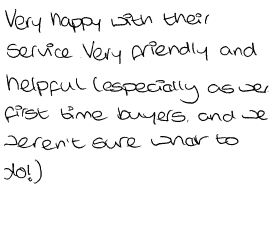 Very happy with their
service. Very friendly and
helpful (especially as we
first time buyers, and we
weren't sure what to
do!)